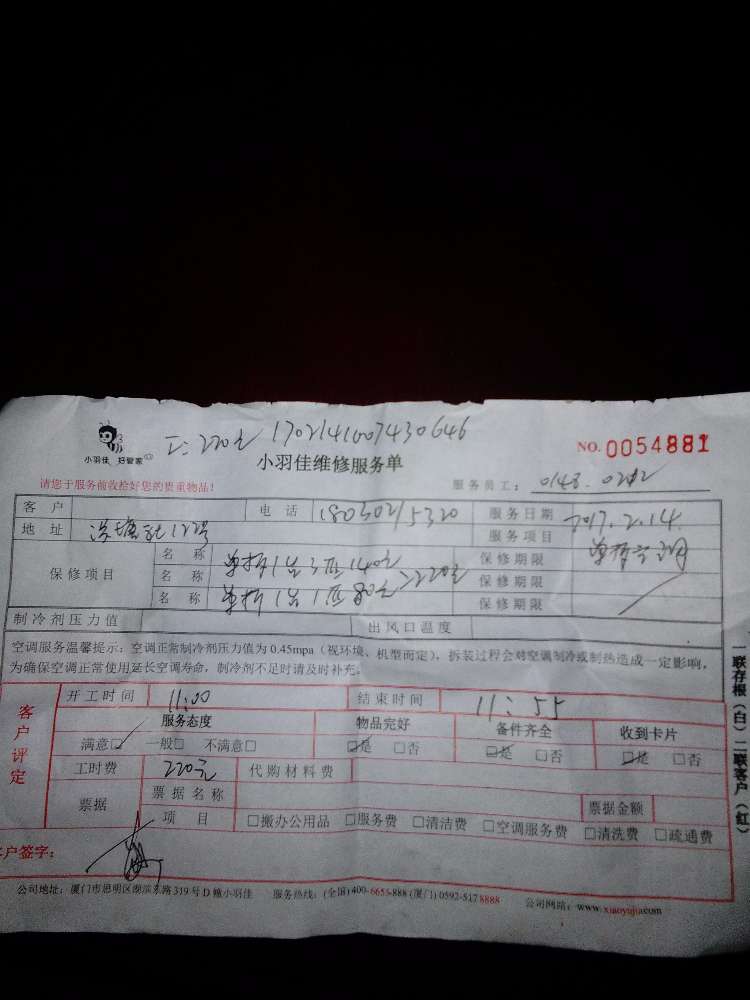 工:220元 1702141007430646
小羽佳 好管家
小羽佳维修服务单
NO. 0054881
请您于服务前收捡好您的贵重物品!
服务员工: 0148.0212
客户 电话 18030215320 服务日期 2017.2.14.
地址 122号 服务项目 单拆空调
保修项目 名称 单拆1台3匹140元 保修期限
名称 =220元 保修期限
名称 单拆1台1匹80元 保修期限
制冷剂压力值 出风口温度
空调服务温馨提示:空调正常制冷剂压力值为0.45mpa(视环境、机型而定),拆装过程会对空调制冷或制热造成一定影响,
为确保空调正常使用延长空调寿命,制冷剂不足时请及时补充。
客户评定
开工时间 11:00 结束时间 11:55
服务态度 物品完好 备件齐全 收到卡片
满意☑ 一般□ 不满意□ ☑是 □否 ☑是 □否 ☑是 □否
工时费 220元 代购材料费
票据 票据名称 票据金额
项目 □搬办公用品 □服务费 □清洁费 □空调服务费 □清洗费 □疏通费
客户签字:
公司地址:厦门市思明区湖滨东路319号D幢小羽佳 服务热线:(全国)400-6653-888 (厦门)0592-5178888 公司网络:www.xiaoyujia.com
一联存根(白)二联客户(红)